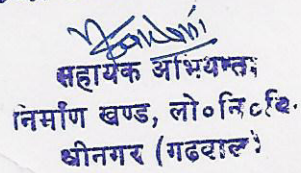 सहायक अभियन्ता
निर्माण खण्ड, लो०नि०वि०
श्रीनगर (गढवाल)